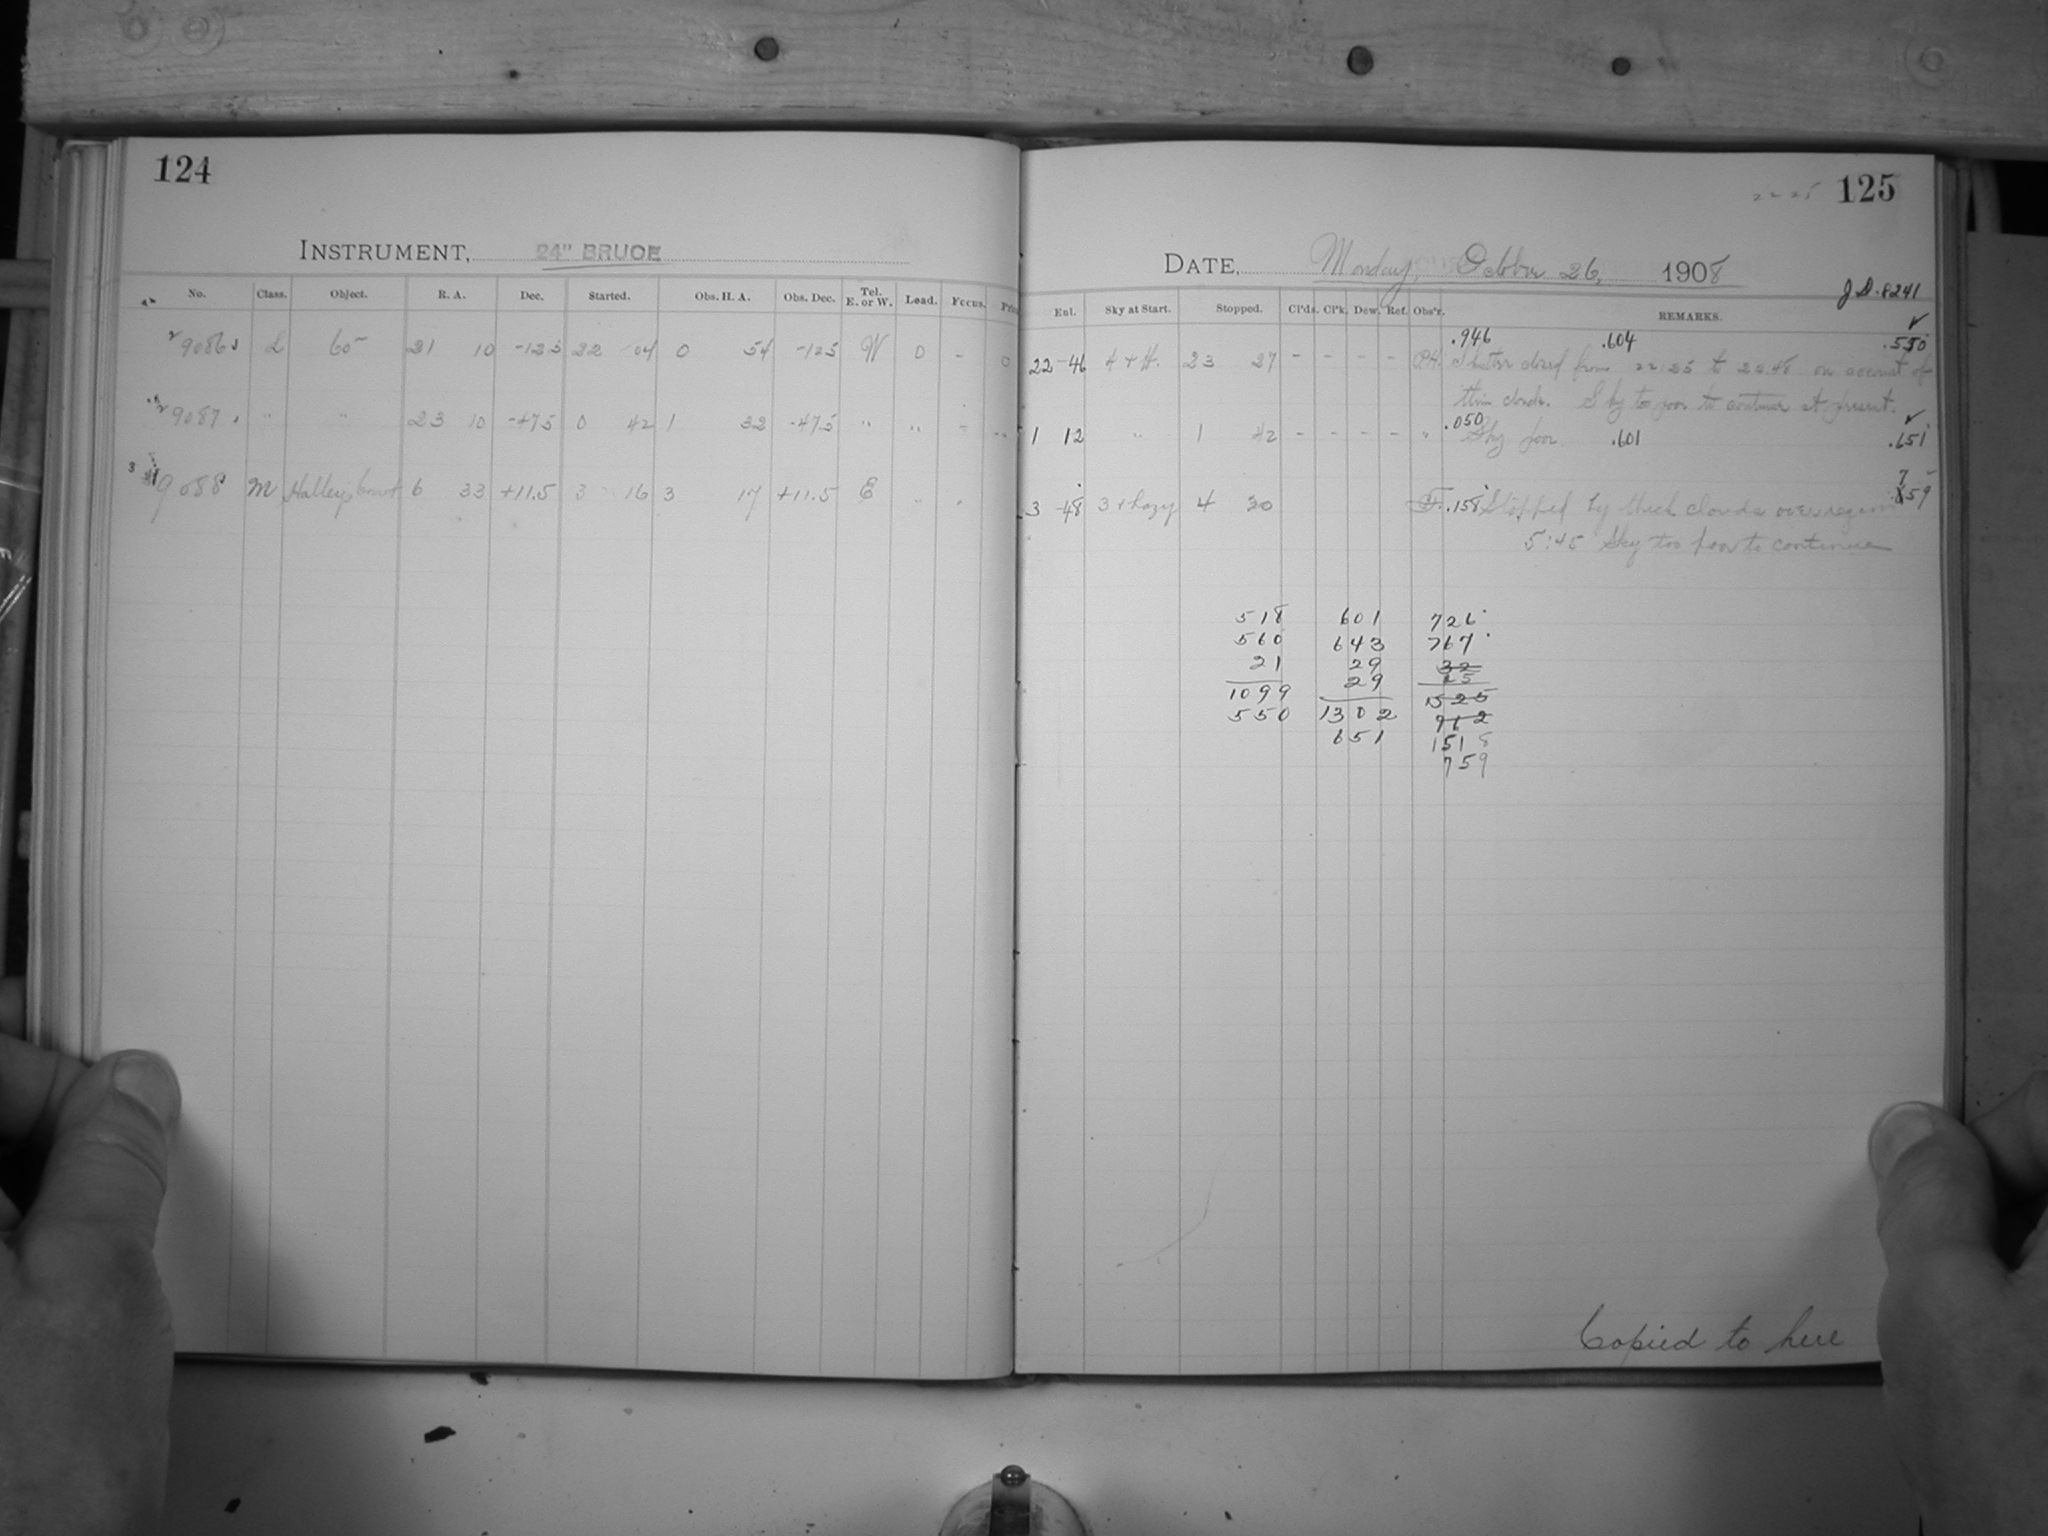 124
INSTRUMENT, 24" BRUCE
No. Class. Object. R. A. Dec. Started. Obs. H. A. Obs. Dec. Tel. E. or W. Lead. Focus.
9086 L 60 21 10 -12.5 22 04 0 54 -12.5 W 0 - 0
9087 " " 23 10 -47.5 0 42 1 32 -47.5 " " - "
9088 M Halley's Comet 6 33 +11.5 3 16 3 17 +11.5 E " "
22 25 125
DATE, Monday, October 26, 1908
J.D. 8241
Ent. Sky at Start. Stopped. Cl'ds. Cl'k. Dew. Ref. Obs'r. REMARKS.
.946 .604 .550
22 46 23 27 - - - - Shutter closed from 22:25 to 22:48 on account of
thin clouds. Sky too poor to continue at present.
1 12 " 1 42 - - - - " .050 Sky poor. .601 .651
7
3 48 3 + hazy 4 20 F. .158 Stopped by thick clouds over region 859
5:45 Sky too poor to continue
518 601 726
560 643 767
21 29 32
29 25
1099 1302 1525
550 651 912
1518
759
Copied to here